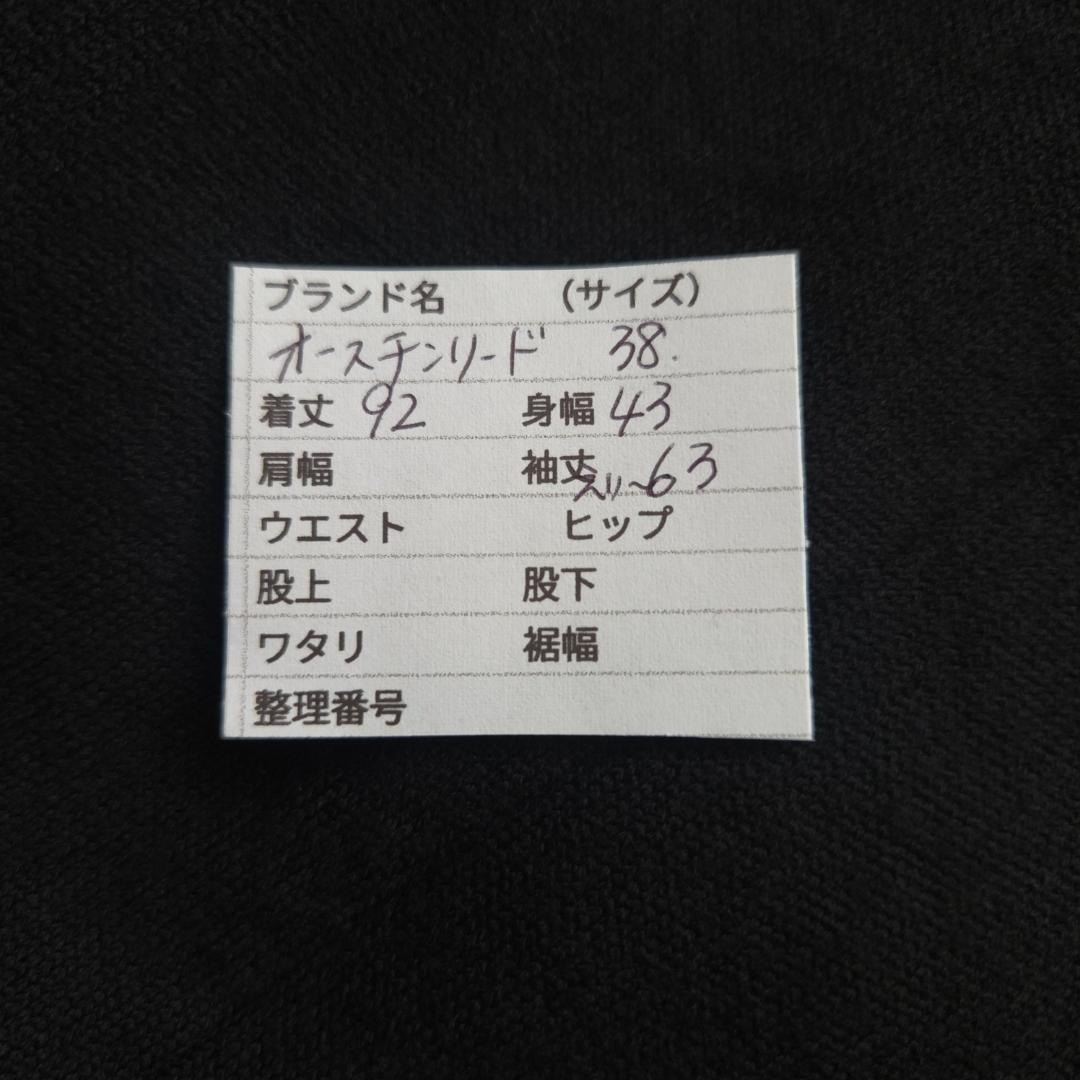 ブランド名 (サイズ)
オースチンリード 38.
着丈 92 身幅 43
肩幅 袖丈 えり~63
ウエスト ヒップ
股上 股下
ワタリ 裾幅
整理番号